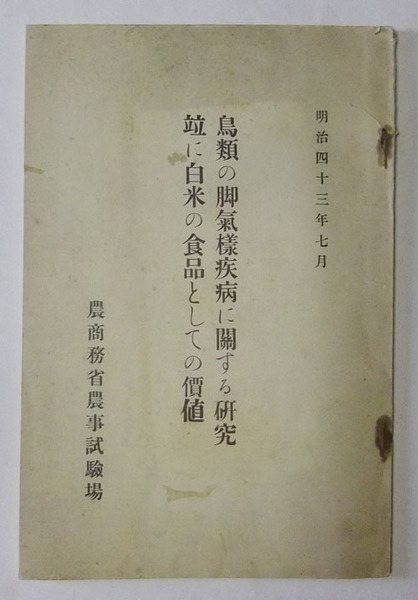 明治四十三年七月
鳥類の脚氣樣疾病に關する硏究
竝に白米の食品としての價値
農商務省農事試驗場